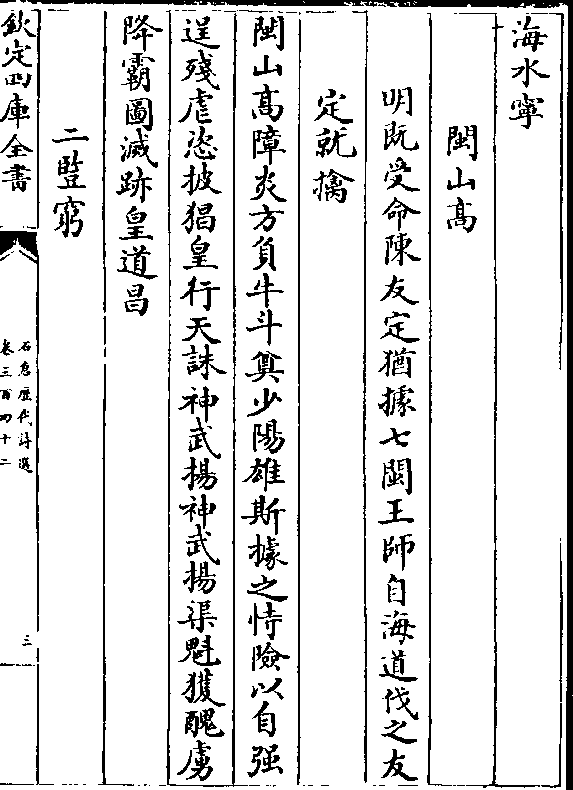 海水寧
閩山髙
明既受命陳友定猶據七閩王師自海道伐之友
定就擒
閩山髙障炎方負牛斗奠少陽雄斯據之恃險以自强
逞殘虐恣披猖皇行天誅神武揚神武揚渠魁獲醜虜
降霸圖滅跡皇道昌
二豎窮
欽定四庫全書
石倉歷代詩選
卷三百四十二
三